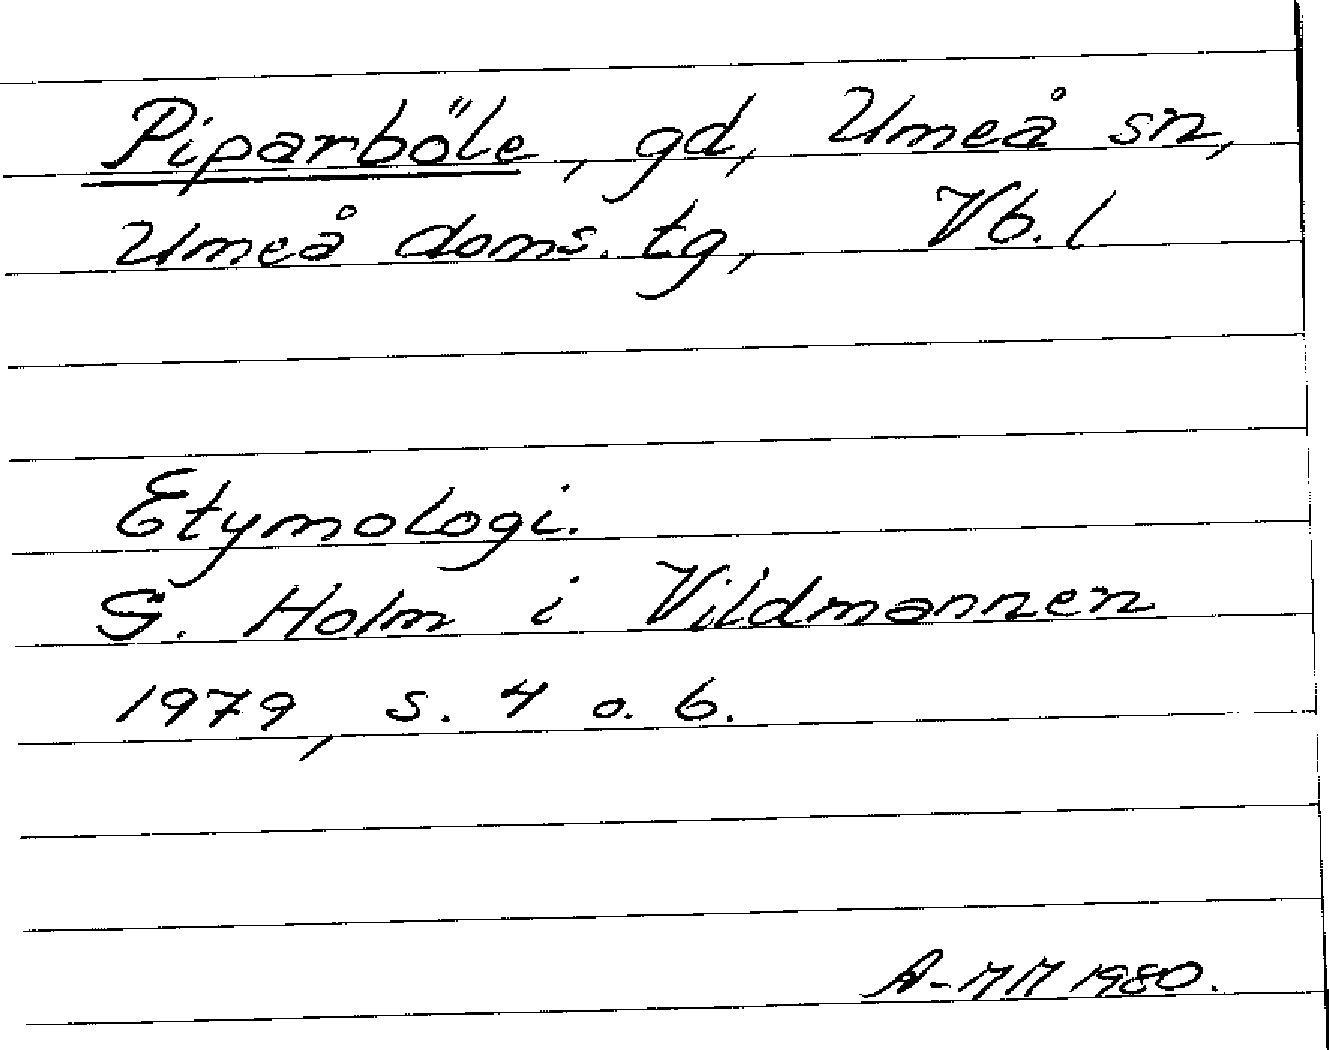 Piparböle, gd, Umeå sn,
Umeå doms. tg, Vb. l
Etymologi.
G. Holm i Vildmannen
1979, s. 4 o. 6.
A-MM 1980.